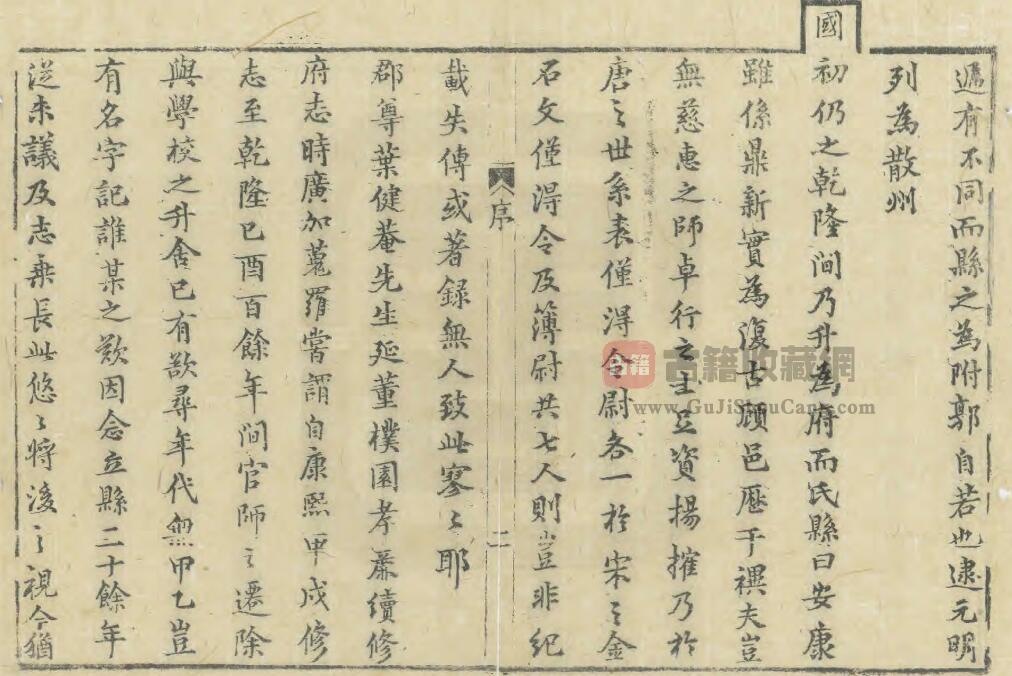 遞有不同而縣之為附郭自若也逮元明
列為散州
國
初仍之乾隆間乃升為府而氏縣曰安康
雖係鼎新實為復古顧邑歷千禩夫豈
無慈惠之師卓行之士足資揚搉乃於
唐之世系表僅得令尉各一於宋之金
石文僅得令及簿尉共七人則豈非紀
序
二
載失傳或著録無人致此寥〻耶
郡尊葉健菴先生延董樸園孝廉續修
府志時廣加蒐羅嘗謂自康熙甲戌修
志至乾隆已酉百餘年間官師之遷除
與學校之升舍已有歎尋年代無甲乙豈
有名字記誰某之歎因念立縣二十餘年
從未議及志乘長此悠〻將後之視今猶
古籍
古籍收藏網
www.GuJiShouCang.com